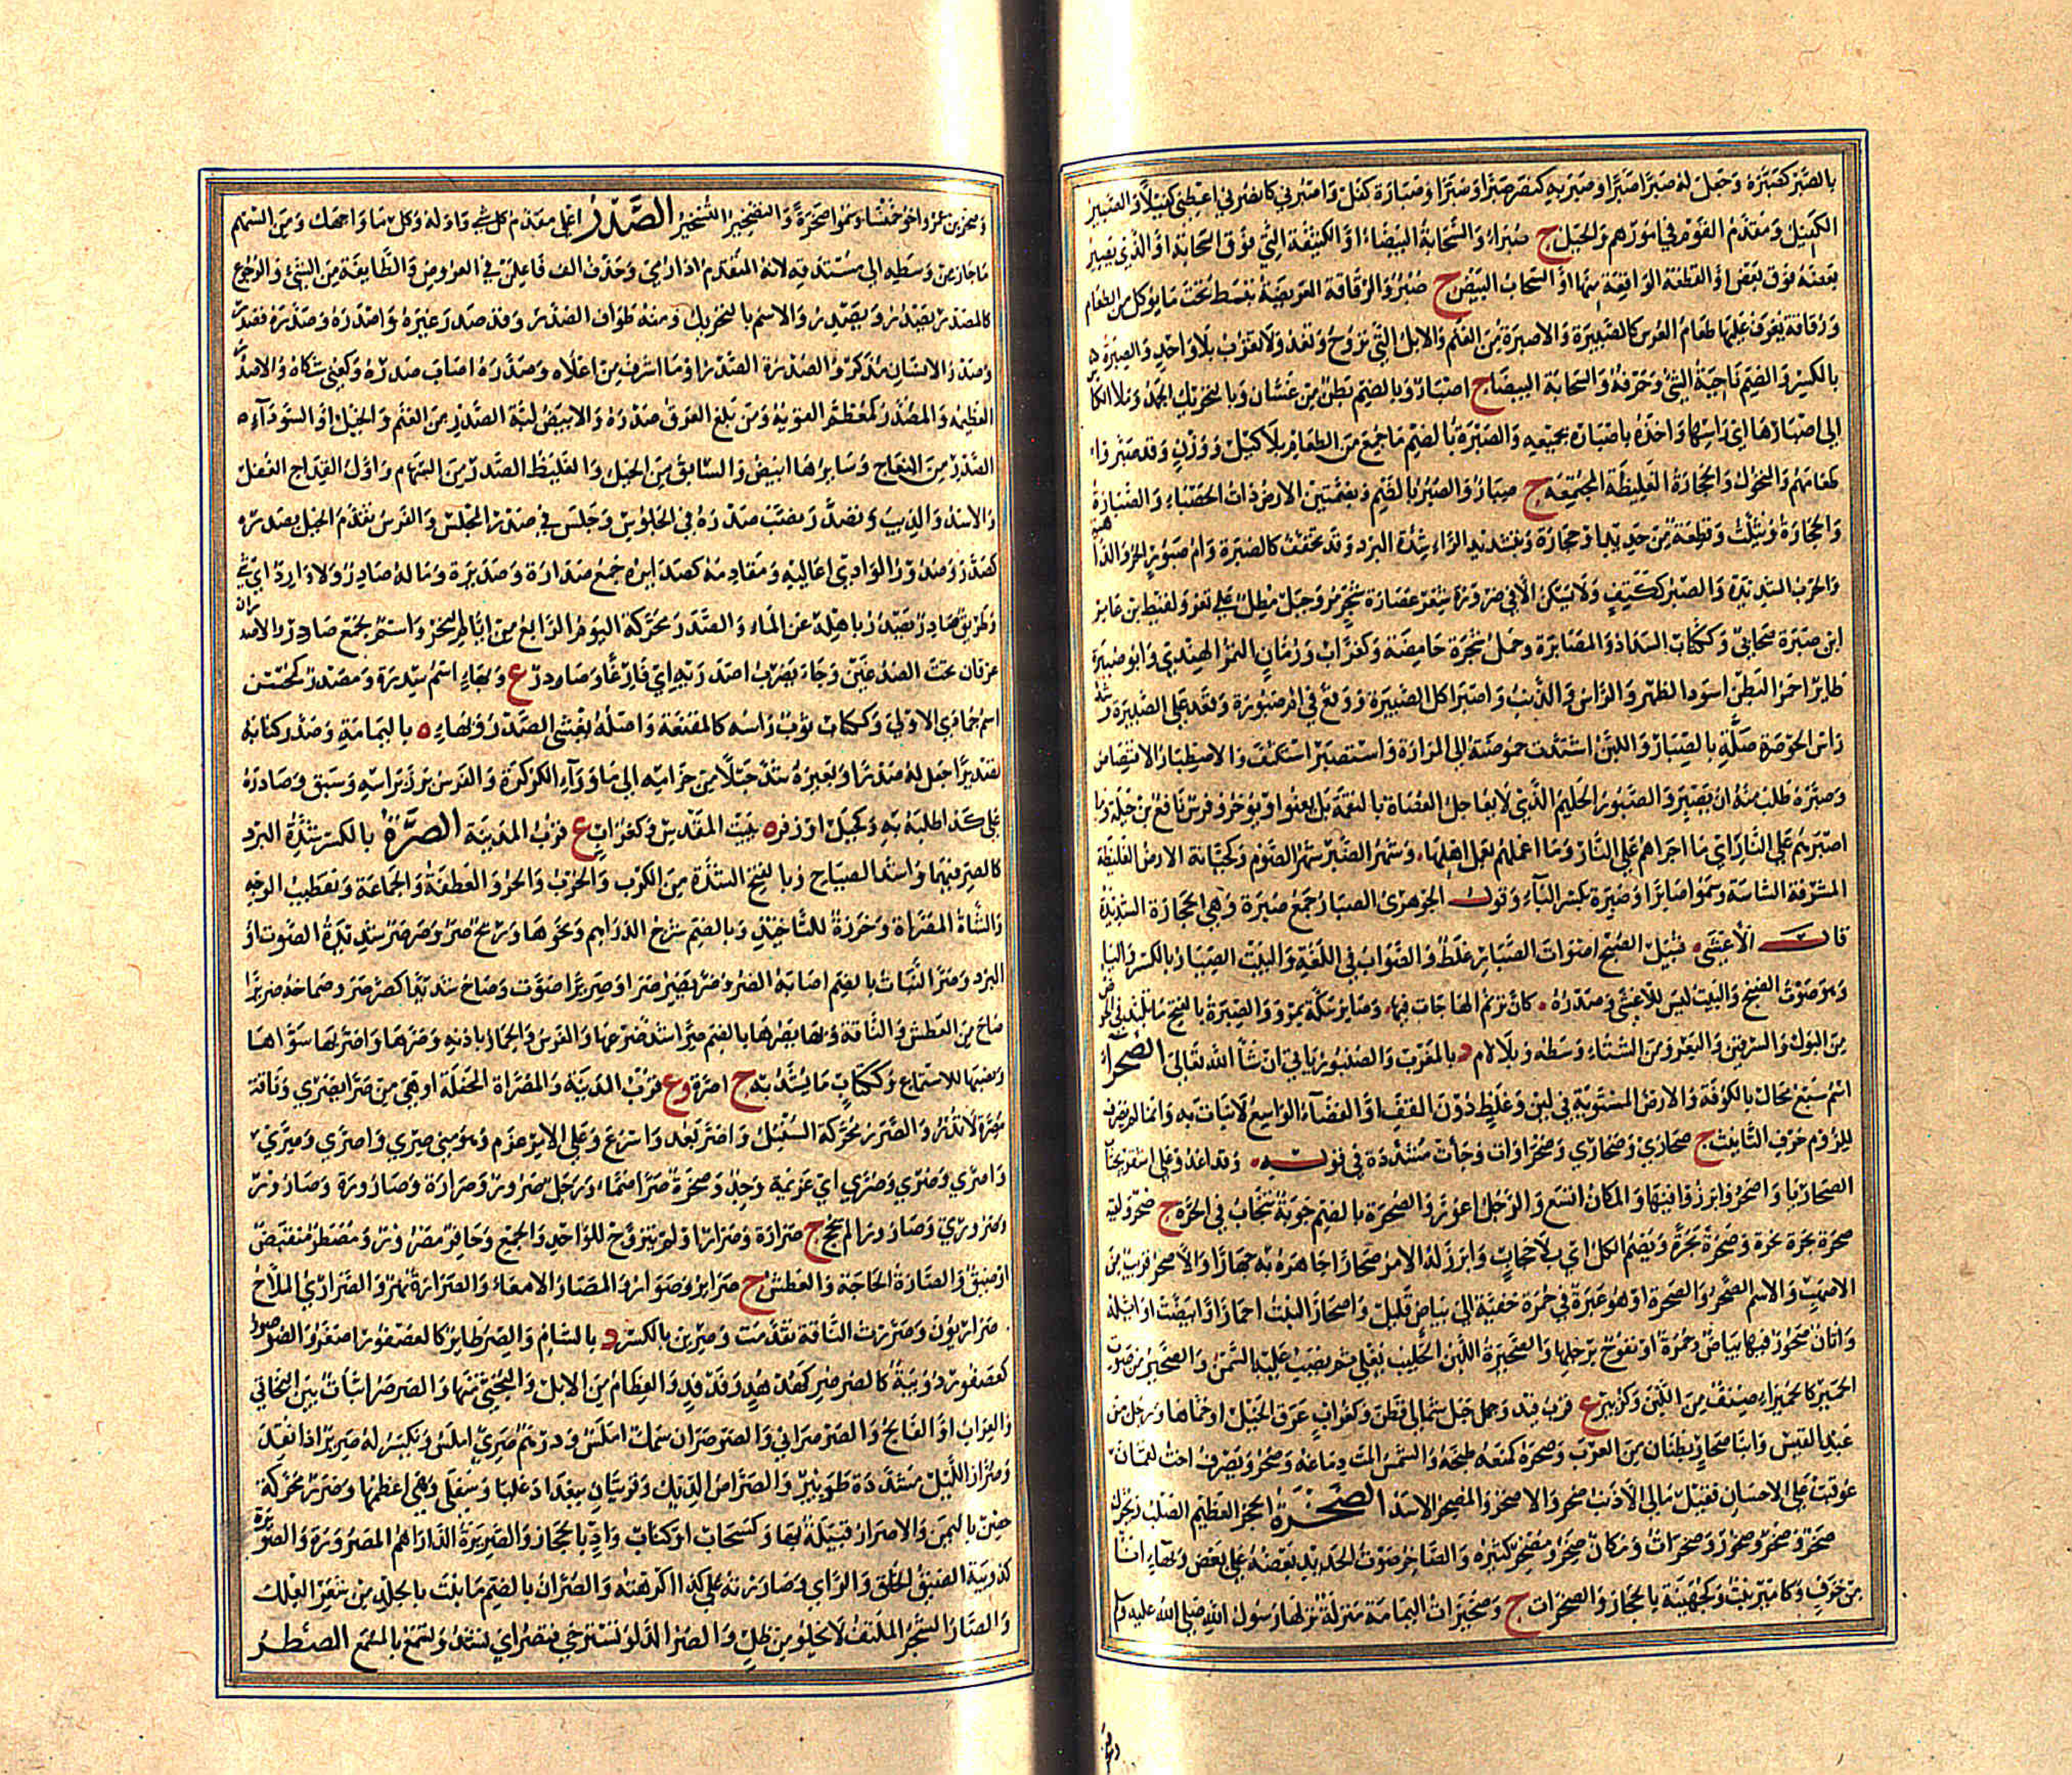 بالصبر كصبره وجعل له صبرا صبرا وصبر به كنصر صبرا وصبرا وصبارة كفل واصبرني كانصرني اعطني كفيلا والصبير
الكفيل ومقدم القوم في امورهم والجبل ج صبراء والسحابة البيضاء او الكثيفة التي فوق السحابة او الذي يصير
بعضه فوق بعض او القطعة الواقفة منها او السحاب البيض ج صبر والرقاقة العريضة تبسط تحت ما يوكل من الطعام
ورقاقة يغرف عليها طعام العرس كالصبيرة والاصبرة من الغنم والابل التي تروح وتغدو ولا تعزب بلا واحد والصبر
بالكسر والضم ناحية الشئ وحرفه والسحابة البيضا ج اصبار وبالضم بطن من غسان وبالتحريك الجمد وملا الكاس
الى اصبارها اي راسها واخذه باصباره بجميعه والصبرة بالضم ما جمع من الطعام بلا كيل ووزن وقد صبروا
طعامهم والمنخول والحجارة الغليظة المجتمعة ج صبار والصبر بالضم وبضمتين الارض ذات الحصباء والصبارة
والحجارة ويثلث وقطعة من حديد او حجارة وبتشديد الراء شدة البرد وقد تخفف كالصبرة وام صبور الحر والداهية
والحرب الشديدة والصبر ككتف ولا يسكن الا في ضرورة شعر عصارة شجر مر وجبل مطل على تعز ولقيط بن عامر
ابن صبرة صحابي وككتاب السداد والمصابرة وحمل شجرة حامضة وكغراب ورمان التمر الهندي وابو صبيرة
طاير احمر البطن اسود الظهر والراس والذنب واصبر اكل الصبيرة ووقع في ام صبور وقعد على الصبير وسد
راس الحوجلة بالصبار واللبن اشتدت حموضته الى المرارة واستصبر استكثف والاصطبار الاقتصاص
وصبره طلب منه ان يصبر والصبور الحليم الذي لا يعاجل العصاة بالنقمة بل يعفو او يوخر وفرس نافع بن جبلة وما
اصبرهم على النار اي ما اجراهم على النار وما اعملهم بعمل اهلها وشهر الصبر شهر الصوم وكجبانة الارض الغليظة
المشرفة الشاسة وسموا صابرا وصبرة بكسر الباء وقول الجوهري الصبار جمع صبرة وهي الحجارة الشديدة
قال الاعشى قبيل الصبح اصوات الصبار غلط والصواب في اللغة والبيت الصيار بالكسر والياء
وهو صوت الصنج والبيت ليس للاعشى وصدره كان ترنم الهاجات فيها وصابر سكة بمرو والصبرة بالفتح ما تلبد في الحوض
من البول والسرقين والبعر ومن الشتاء وسطه وبلا لام د بالمغرب والصنبور ياتي ان شا الله تعالى الصحراء
اسم سبع محال بالكوفة والارض المستوية في لين وغلظ دون القف او الفضاء الواسع لا نبات به وانما لم يصرف
للزوم حرف التانيث ج صحاري وصحاري وصحراوات وجات مشددة في قوله وقد اغدو على اشقر يجتاب
الصحاريا واصحروا برزوا فيها والمكان اتسع والرجل اعور والصحرة بالضم جوبة تنجاب في الحرة ج صحر ولقيه
صحرة بحرة نحرة وصحرة بحرة ويضم الكل اي بلا حجاب وابرز له الامر صحارا جاهره به جهارا والاصحر قريب من
الاصهب والاسم الصحر والصحرة او هو غبرة في حمرة خفية الى بياض قليل واصحار النبت احمار او ابيضت اوايله
واتان صحور فيها بياض وحمرة او نفوح برجلها والصحيرة اللبن الحليب يغلي ثم يصب عليه السمن والصحير من صوت
الحمير كالحمير ايه صنف من اللبن وكزبير ع قرب فيد وجبل شمالي قطن وكغراب عرق الخيل او حماها ورجل من
عبد القيس وابنا صحار بطنان من العرب وصحره كمنعه طبخه والشمس المت دماغه وصحر ويصرف اخت لقمان
عوقبت على الاحسان فقيل مالي الا ذنب صحر والاصحر والمصحر الاسد الصخرة الحجر العظيم الصلب ويحرك
صخر وصخر وصخور وصخرات ومكان صخر ومصخر كثيره والصاخر صوت الحديد بعضه على بعض وبهاء اناء
من خزف وكامير نبت وكجهينة بالحجاز والصخرات ج وصخيرات اليمامة منزلة نزلها رسول الله صلى الله عليه وسلم
وصخر بن عمرو اخو خنسا وسموا صخرة والتصخير التسخير الصدر اعلى مقدم كل شي واوله وكل ما واجهك ومن السهم
ما جاز من وسطه الى مستدقه لانه المتقدم اذا رمي وحذف الف فاعلن في العروض والطايفة من الشئ والرجوع
كالمصدر يصدر ويصدر والاسم بالتحريك ومنه طواف الصدر وقد صدر غيره واصدره وصدره فصدر
وصدر الانسان مذكر والصدرة الصدر او ما اشرف من اعلاه وصدره اصاب صدره وكعني شكاه والاصدر
العظيمه والمصدر كمعظم القويه ومن بلغ العرق صدره والابيض لبة الصدر من الغنم والخيل او السوداء
الصدر من النعاج وسايرها ابيض والسابق من الخيل والغليظ الصدر من السهام واول القداح الغفل
والاسد والذيب وتصدر نصب صدره في الجلوس وجلس في صدر المجلس والفرس تقدم الخيل بصدره
كصدر وصدور الوادي اعاليه ومقادمه كصدايره جمع صدارة وصديرة وماله صادر ولا وارد اي شي
وطريق صادر يصدر باهله عن الماء والصدر محركة اليوم الرابع من ايام النحر واسم جمع صادر والاصدران
عرقان تحت الصدغين وجاء يضرب اصدريه اي فارغا وصادر ع وبهاء اسم سدرة ومصدر كمحسن
اسم جمادى الاولى وككتاب ثوب راسه كالمقنعة واسفله يغشى الصدر وبهاء ه باليمامة وصدر كتابه
تصديرا جعل له صدرا وبعيره شد حبلا من حزامه الى ما وراء الكركرة والفرس برز براسه وسبق وصادره
على كذا طلبه به وكجبل او زفر ه ببيت المقدس وكغراب ع قرب المدينة الصرة بالكسر شدة البرد
كالصر فيهما واشد الصياح وبالفتح الشدة من الكرب والحرب والحر والعطفة والجماعة وتقطيب الوجه
والشاة المصراة وخرزة للتاخيذ وبالضم شرج الدراهم ونحوها وريح صر وصرصر شديدة الصوت او
البرد وصر النبات بالضم اصابه الصر وصر يصر صرا وصريرا صوت وصاح شديدا كصرصر وصماخه صريرا
صاح من العطش والناقة وبها يصرها بالضم صرا شد ضرعها والفرس والحمار باذنه وصرها واصر بها سواها
ونصبها للاستماع وككتاب ما يشد به ج اصرة وع قرب المدينة والمصراة المحفلة او هي من صرا يصري وناقة
مصرة لا تدر والصرر محركة السنبل واصر يعدو اسرع وعلى الامر عزم وهو مني صري واصري وصري
واصري وصري وصري اي عزيمة وجد وصخرة صرا صماء ورجل صرور وصرارة وصارورة وصارور
وصروري وصاروراء لم يحج ج صرارة وصرار او لم يتزوج للواحد والجميع وحافر مصرور ومصطر منقبض
او ضيق والصارة الحاجة والعطش ج صراير وصوار والمصار الامعاء والصرارة نهر والصراري الملاح
صراريون وصررت الناقة تقدمت وصرين بالكسر د بالشام والصر طاير كالعصفور اصفر والصرصور
كعصفور دويبة كالصرصر كهدهد وفدفد والعظام من الابل والبختي منها والصرصرانيات بين البخاتي
والعراب او الفالج والصرصراني والصرصران سمك املس ودرهم صري املس ويكسر له صرير اذا نقد
وصرار الليل مشددة طويير والصراصر الديك وقريتان ببغداد عليا وسفلى وهي اعظمها وصرر محركة
حصن باليمن والاصرار قبيلة بها وكسحاب او كتاب واد بالحجاز والصريرة الدراهم المصرورة والصويرة
كدويبة الضيق الخلق والراي وصاررته على كذا اكرهته والصران بالضم ما نبت بالجلد من شجر العلك
والصار الشجر الملتف لا يخلو من ظل والصر الدلو تسترخي فتصر اي تشد وتسمع بالمسمع الصطر